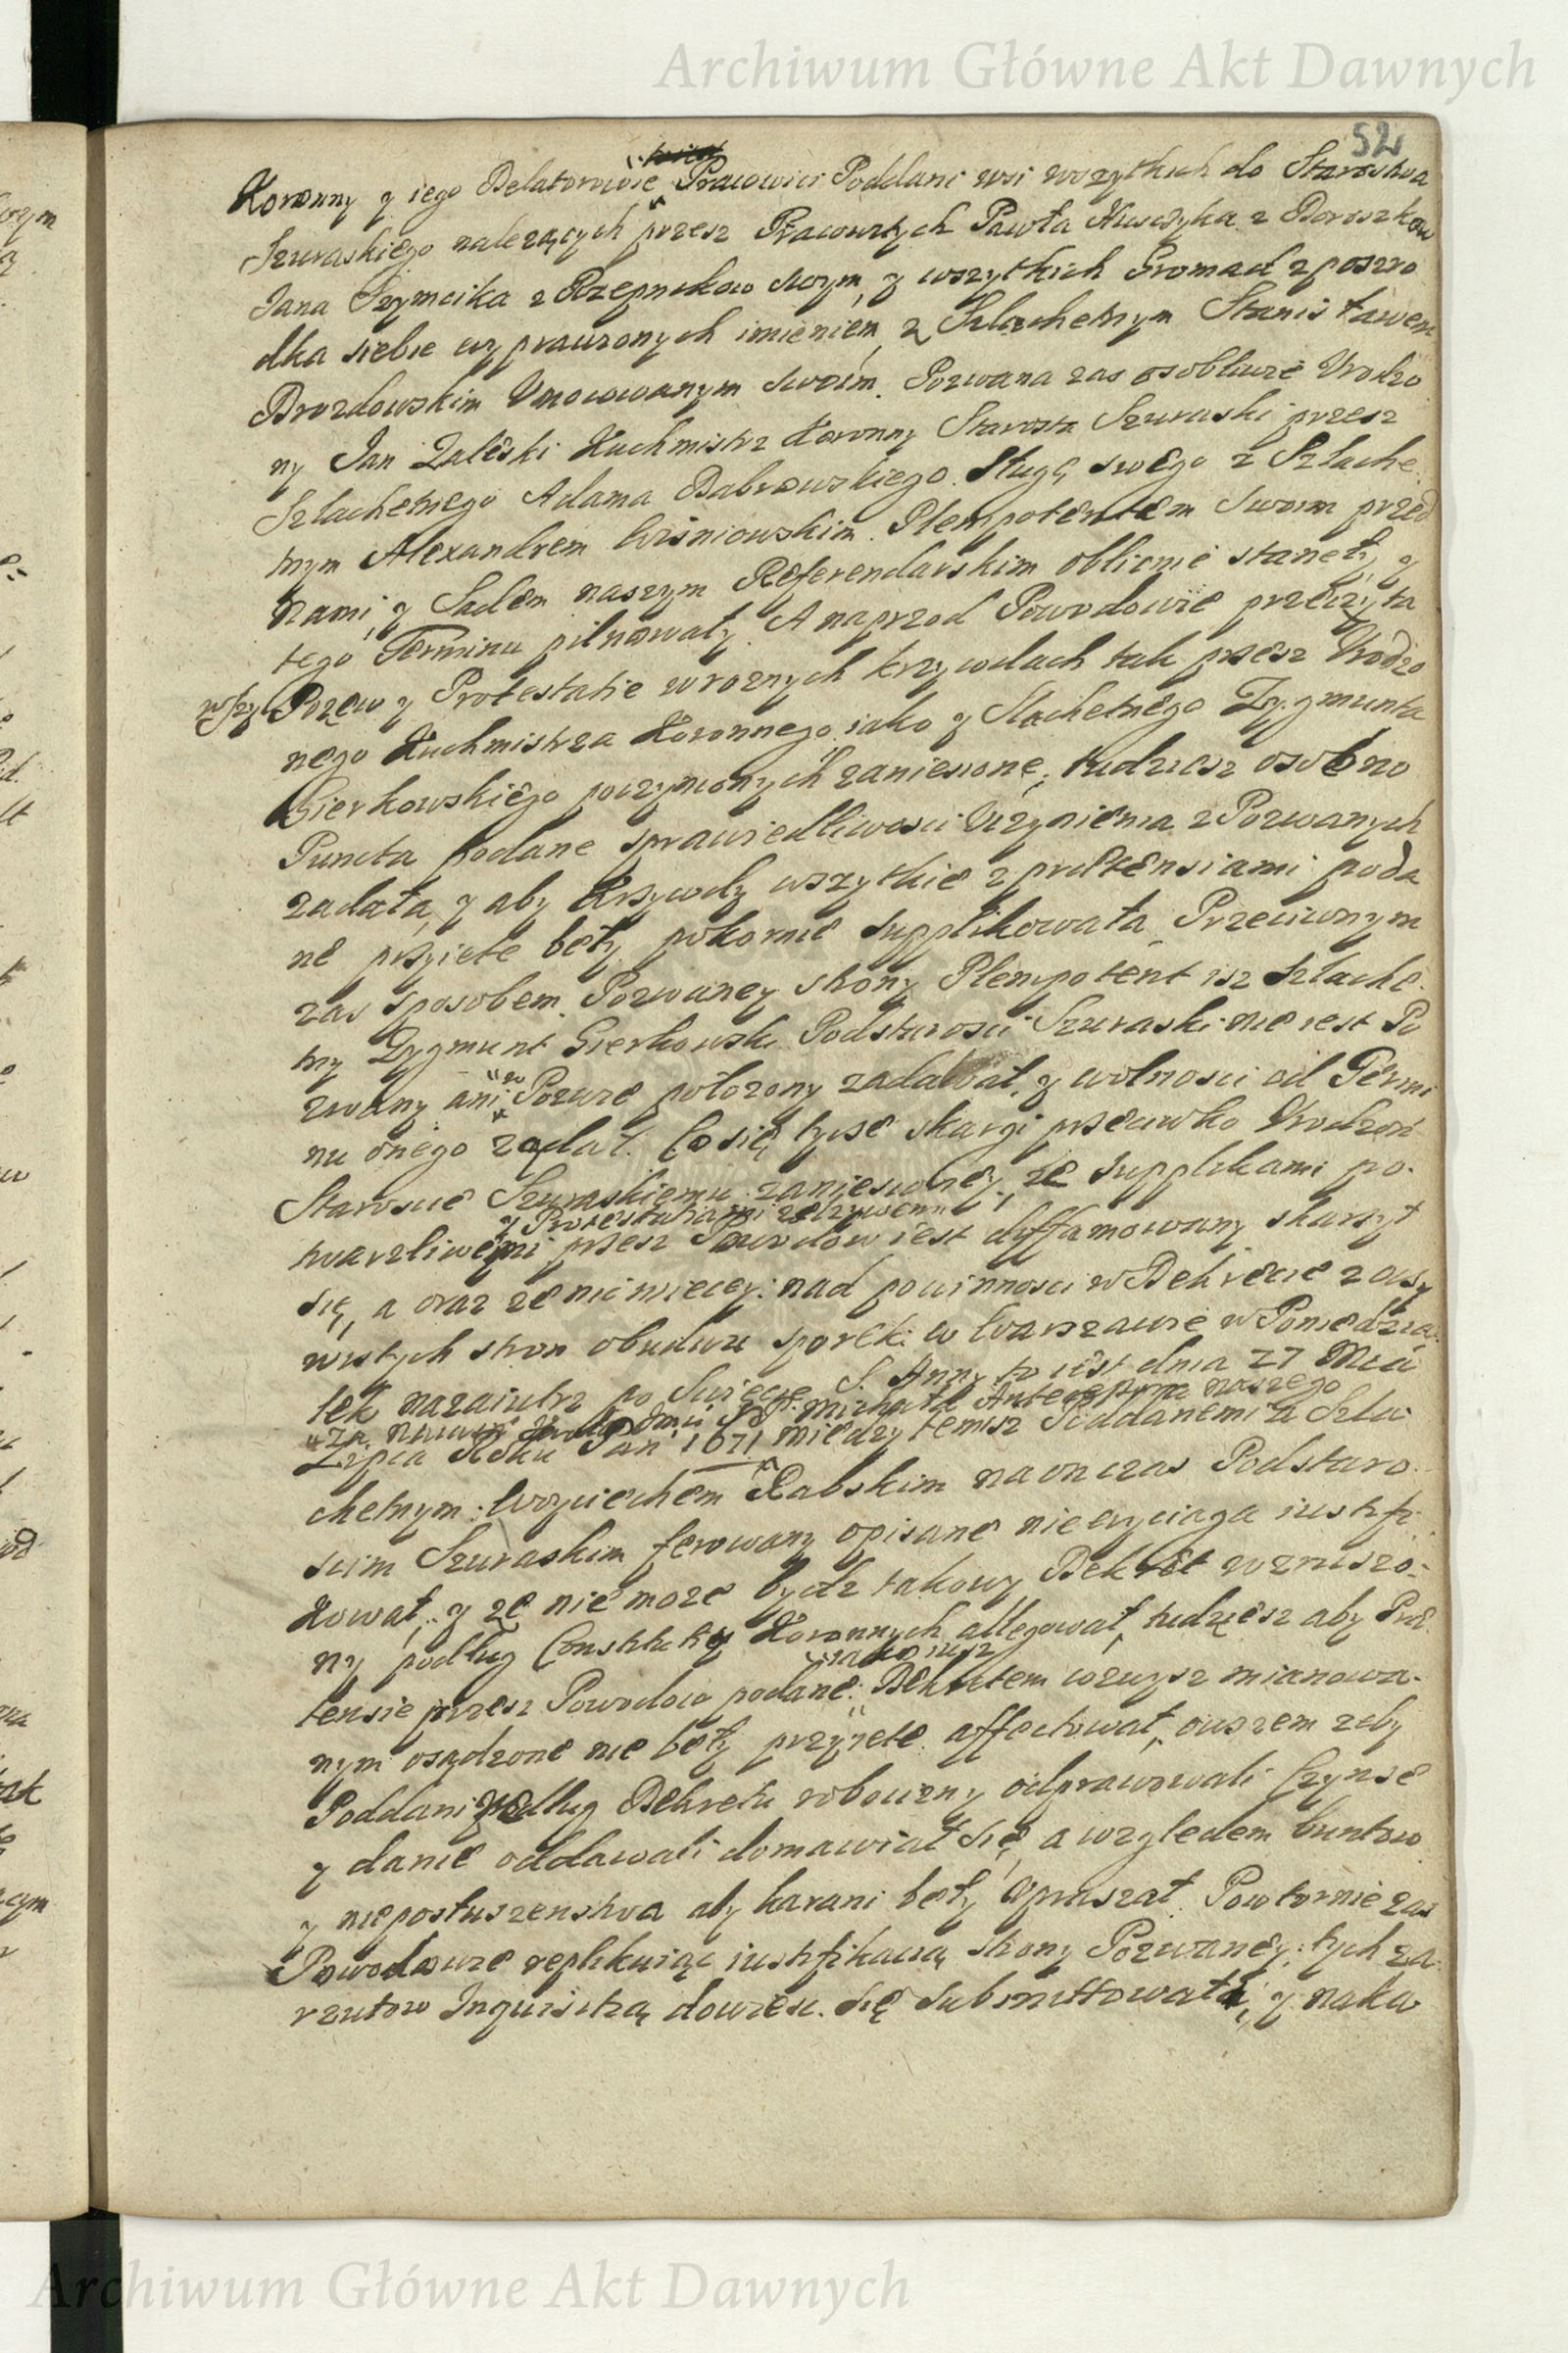 Archiwum Główne Akt Dawnych
52
Koronny y iego Delatorowie Pracowici Poddani wsi wszytkich do Starostwa
Szuraskiego nalezących przesz Pracowitych Pawła z Doroszkow
Jana Szymcika z Rzepnikow swym, y wszytkich Gromad zposzro
dka siebie wyprawionych imieniem, z Szlachetnym Stanisławem
Drozdowskim Umocowanym swoim. Pozwana zas osobliwie Urodzo
ny Jan Zaleski Kuchmistrz Koronny Starosta Szuraski przesz
Szlachetnego Adama Dabrowskiego. Sługę swego z Szlache.
tnym Alexandrem Wisniowskim. Plenipotentem swoim przed
nami, y Sądem naszym Referendarskim oblicnie staneły, y
tego Terminu pilnowały. A naprzod Powodowie przeczyta
wszy Pozew y Protestatie wroznych krzywdach tak przesz Urodzo
nego Kuchmistrza Koronnego, iako y Slachetnego Zygmunta
Gierkowskiego poczynionych zaniesione, tudziesz osobno
Puncta podane sprawiedliwosci Uczynienia z Pozwanych
ządała, y aby Krzywdy wszytkie z praetensiami poda
ne prziete beły pokornie supplikowała. Przeciwnym
zas sposobem. Pozwaney strony Plenipotent isz szlache.
tny Zygmunt Gierkowski Podstarosci Szuraski nie iest Po
zwany ani w Pozwie położony zadawał, y wolnosci od Termi
nu onego ządał. Co się tysze skargi przeciwko Urodzon
Staroscie Szuraskiemu zaniesioney, ze supplikami po.
y Protestatiami zelzywemi
twarzliwemi przesz Powodow iest dyffamowany skarzył
się, a oraz ze nic wiecey: nad powinnosci w Dekrecie z oczy
wistych stron obudwu sporek: w Warszawie w Poniedzia
łek nazaiutrz po Swięcie S. Anny to iest dnia 27 Mca
Krola Jmci SP. Michała Antecessora naszego
Lipca Roku Pan 1671 miedzy temisz Poddanemi a Szla
chetnym: Woyciechem Rabskim naonczas Podstaro
scim Szuraskim ferowany opisane nie wyciąga iustyfi
kował, y ze nie moze bydz takowy Dekret wzruszo-
ny podług Constitucy Koronnych allegował, tudziesz aby Prae
iako iusz
tensie przesz Powodow podane: Dekretem wzwysz mianowa-
nym osądzone nie beły przyięte affectował, owszem zeby
Poddani podług Dekretu robocizny odprawowali Czynsze
y danie oddawali domawiał się, a względem buntow
y nieposłuszenstwa aby karani beły upraszał. Powtornie zas
Powodowie replikuiąc iustyfikacią strony Pozwaney: tych za-
rzutow Inquisitią dowiesc się submittowała, y naka
Archiwum Główne Akt Dawnych